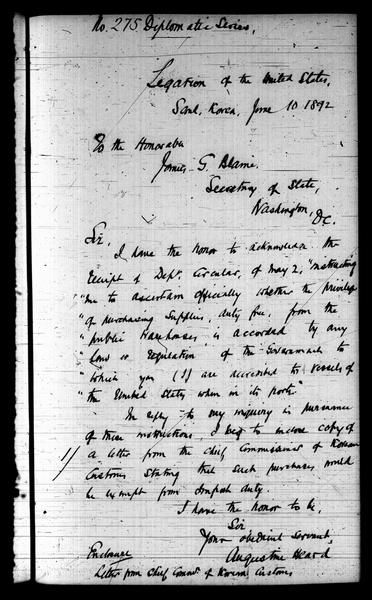 No. 275 Diplomatic Series.
Legation of the United States,
Seoul, Korea, June 10 1892
To the Honorable
James G. Blaine.
Secretary of State,
Washington,
D.C.
Sir,
I have the honor to acknowledge the
receipt of Dept. Circular, of May 2, "instructing
"me to ascertain officially whether the privilege
"of purchasing supplies, duty free, from the
"public warehouses, is accorded by any
"law or regulation of the Government to
which you (I) are accredited to vessels of
"the United States when in its ports."
In reply to my inquiry in pursuance
of these instructions, I beg to inclose copy of
1/ a letter from the Chief Commissioner of Korean
Customs stating that such purchases would
be exempt from import duty.
I have the honor to be,
Sir
Your obedient Servant,
Augustine Heard
Enclosure
Letter from Chief Commr. of Korean Customs